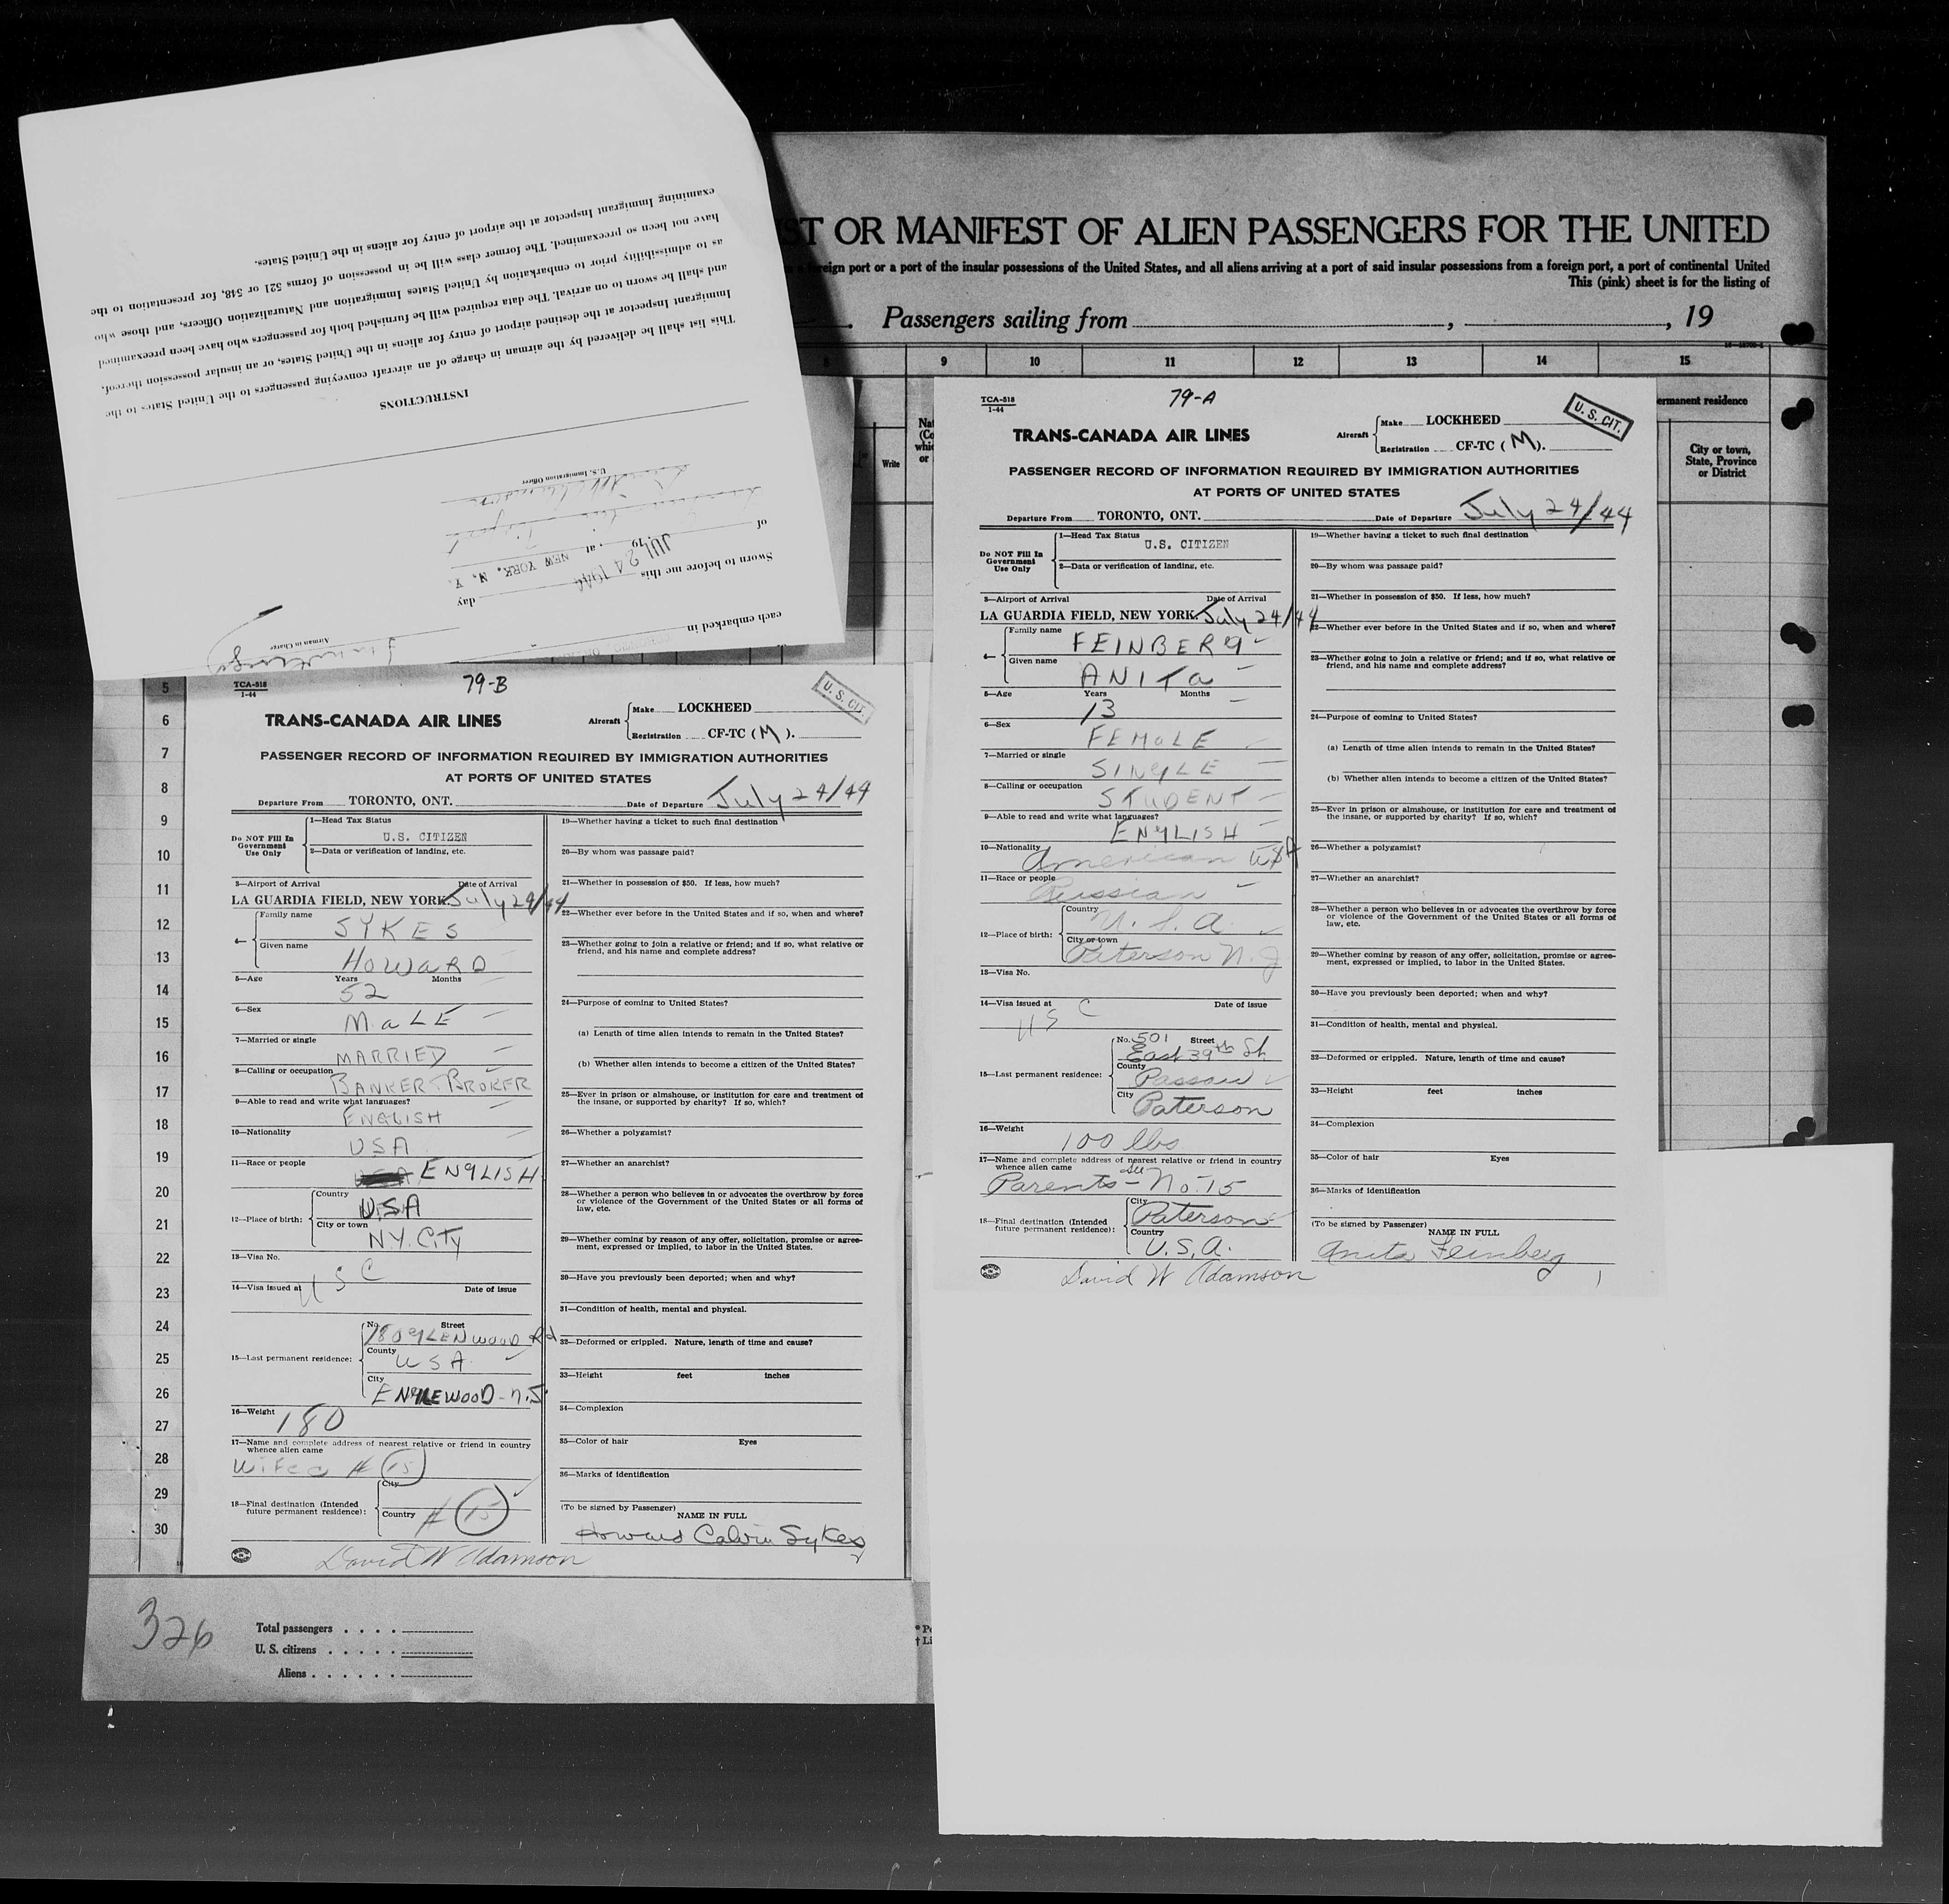 INSTRUCTIONS
This list shall be delivered by the airman in charge of an aircraft conveying passengers to the United States to the
Immigrant Inspector at the destined airport of entry for aliens in the United States, or an insular possession thereof,
and shall be sworn to on arrival. The data required will be furnished both for passengers who have been preexamined
as to admissibility prior to embarkation by United States Immigration and Naturalization Officers, and those who
have not been so preexamined. The former class will be in possession of forms 521 or 548, for presentation to the
examining Immigrant Inspector at the airport of entry for aliens in the United States.
each embarked in
Airman in Charge
Sworn to before me this JUL 24 1944 day
of 19 , at NEW YORK, N. Y.
U.S. Immigration Officer
ST OR MANIFEST OF ALIEN PASSENGERS FOR THE UNITED
foreign port or a port of the insular possessions of the United States, and all aliens arriving at a port of said insular possessions from a foreign port, a port of continental United
This (pink) sheet is for the listing of
Passengers sailing from , , 19
8 9 10 11 12 13 14 15
ermanent residence
Write
City or town,
State, Province
or District
TCA-518
1-44
79-A
U. S. CIT.
TRANS-CANADA AIR LINES
Aircraft
Make LOCKHEED
Registration CF-TC (M).
PASSENGER RECORD OF INFORMATION REQUIRED BY IMMIGRATION AUTHORITIES
AT PORTS OF UNITED STATES
Departure From TORONTO, ONT. Date of Departure July 24/44
Do NOT Fill In
Government
Use Only
1—Head Tax Status
U.S. CITIZEN
2—Data or verification of landing, etc.
3—Airport of Arrival Date of Arrival
LA GUARDIA FIELD, NEW YORK. July 24/44
4— Family name FEINBERG
Given name ANITA
5—Age Years Months
13
6—Sex
FEMALE
7—Married or single
SINGLE
8—Calling or occupation
STUDENT
9—Able to read and write what languages?
ENGLISH
10—Nationality
American USA
11—Race or people
Russian
12—Place of birth: Country U. S. A.
City or town Paterson N. J
13—Visa No.
14—Visa issued at Date of issue
U S C
15—Last permanent residence: No. 501 Street
East 39th St.
County
Passaic
City
Paterson
16—Weight
100 lbs
17—Name and complete address of nearest relative or friend in country
whence alien came
Parents — see No. 15
18—Final destination (Intended
future permanent residence):
City
Paterson
Country
U.S.A.
David W Adamson
19—Whether having a ticket to such final destination
20—By whom was passage paid?
21—Whether in possession of $50. If less, how much?
22—Whether ever before in the United States and if so, when and where?
23—Whether going to join a relative or friend; and if so, what relative or
friend, and his name and complete address?
24—Purpose of coming to United States?
(a) Length of time alien intends to remain in the United States?
(b) Whether alien intends to become a citizen of the United States?
25—Ever in prison or almshouse, or institution for care and treatment of
the insane, or supported by charity? If so, which?
26—Whether a polygamist?
27—Whether an anarchist?
28—Whether a person who believes in or advocates the overthrow by force
or violence of the Government of the United States or all forms of
law, etc.
29—Whether coming by reason of any offer, solicitation, promise or agree-
ment, expressed or implied, to labor in the United States.
30—Have you previously been deported; when and why?
31—Condition of health, mental and physical.
32—Deformed or crippled. Nature, length of time and cause?
33—Height feet inches
34—Complexion
35—Color of hair Eyes
36—Marks of identification
(To be signed by Passenger)
NAME IN FULL
Anita Feinberg
TCA-518
1-44
79-B
U. S. CIT.
TRANS-CANADA AIR LINES
Aircraft
Make LOCKHEED
Registration CF-TC (M).
PASSENGER RECORD OF INFORMATION REQUIRED BY IMMIGRATION AUTHORITIES
AT PORTS OF UNITED STATES
Departure From TORONTO, ONT. Date of Departure July 24/44
Do NOT Fill In
Government
Use Only
1—Head Tax Status
U.S. CITIZEN
2—Data or verification of landing, etc.
3—Airport of Arrival Date of Arrival
LA GUARDIA FIELD, NEW YORK. July 24/44
4— Family name SYKES
Given name HOWARD
5—Age Years Months
52
6—Sex
MALE
7—Married or single
MARRIED
8—Calling or occupation
BANKER-BROKER
9—Able to read and write what languages?
ENGLISH
10—Nationality
USA
11—Race or people
ENGLISH
12—Place of birth: Country USA
City or town N.Y. CITY
13—Visa No.
14—Visa issued at Date of issue
U S C
15—Last permanent residence: No. Street
180 GLENWOOD Rd
County
USA
City
ENGLEWOOD - N.J.
16—Weight
180
17—Name and complete address of nearest relative or friend in country
whence alien came
Wife # 15
18—Final destination (Intended
future permanent residence):
City
Country
# 15
David W Adamson
19—Whether having a ticket to such final destination
20—By whom was passage paid?
21—Whether in possession of $50. If less, how much?
22—Whether ever before in the United States and if so, when and where?
23—Whether going to join a relative or friend; and if so, what relative or
friend, and his name and complete address?
24—Purpose of coming to United States?
(a) Length of time alien intends to remain in the United States?
(b) Whether alien intends to become a citizen of the United States?
25—Ever in prison or almshouse, or institution for care and treatment of
the insane, or supported by charity? If so, which?
26—Whether a polygamist?
27—Whether an anarchist?
28—Whether a person who believes in or advocates the overthrow by force
or violence of the Government of the United States or all forms of
law, etc.
29—Whether coming by reason of any offer, solicitation, promise or agree-
ment, expressed or implied, to labor in the United States.
30—Have you previously been deported; when and why?
31—Condition of health, mental and physical.
32—Deformed or crippled. Nature, length of time and cause?
33—Height feet inches
34—Complexion
35—Color of hair Eyes
36—Marks of identification
(To be signed by Passenger)
NAME IN FULL
Howard Calvin Sykes
5
6
7
8
9
10
11
12
13
14
15
16
17
18
19
20
21
22
23
24
25
26
27
28
29
30
326
Total passengers
U. S. citizens
Aliens